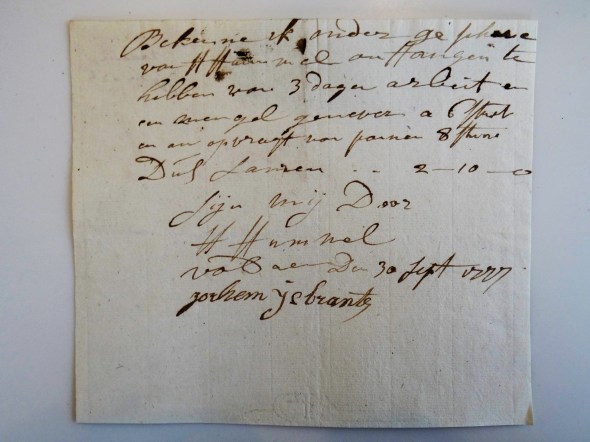 Bekenne ik onder ge schreve
van H Hummel ontfangen te
hebben van 3 dagen arbeit en
en mengel genever a 6 stuv
en an opvragt van 8 stuve
Dus Samen . . 2-10-0
Sijn mij Door
H Hummel
vol aen Den 30 Sept 1777
jochem ijsbrants